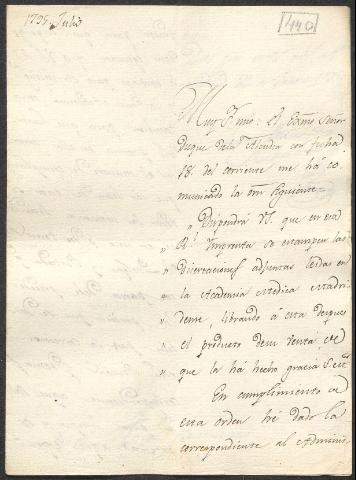 1795, Julio
440
Muy Sr. mio: el Exmo. Señor
Duque de la Alcudia con fecha
18 del corriente me há co
municado la orn siguiente=
" Dispondrá VS. que en esa
" Rl. Imprenta se estampen las
" Disertaciones adjuntas leidas en
" la Academia Medica Madri
" dense, librando a esta despues
" el producto de su venta de
" que la há hecho gracia S.
En cumplimiento de
esta orden hé dado la
correspondiente al Adminis